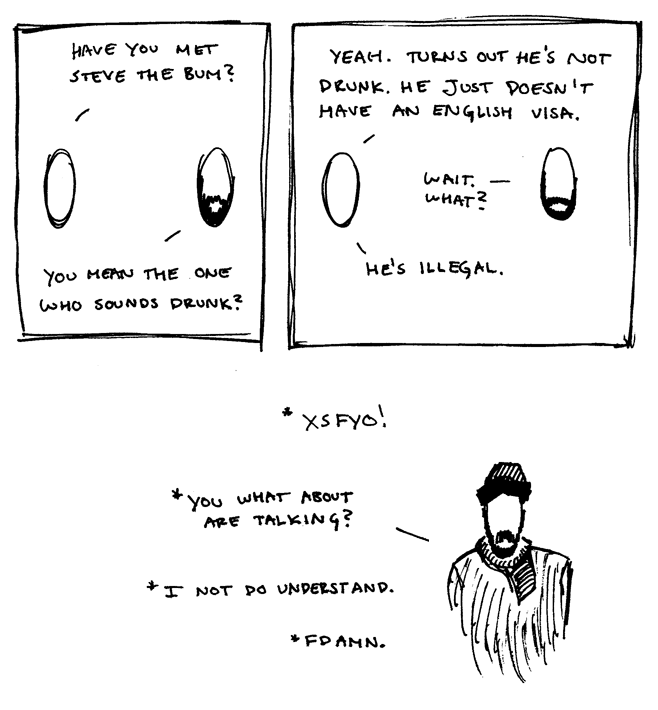 HAVE YOU MET
STEVE THE BUM?
YOU MEAN THE ONE
WHO SOUNDS DRUNK?
YEAH. TURNS OUT HE'S NOT
DRUNK. HE JUST DOESN'T
HAVE AN ENGLISH VISA.
WAIT.
WHAT?
HE'S ILLEGAL.
*XSFYO!
*YOU WHAT ABOUT
ARE TALKING?
*I NOT DO UNDERSTAND.
*FDAMN.